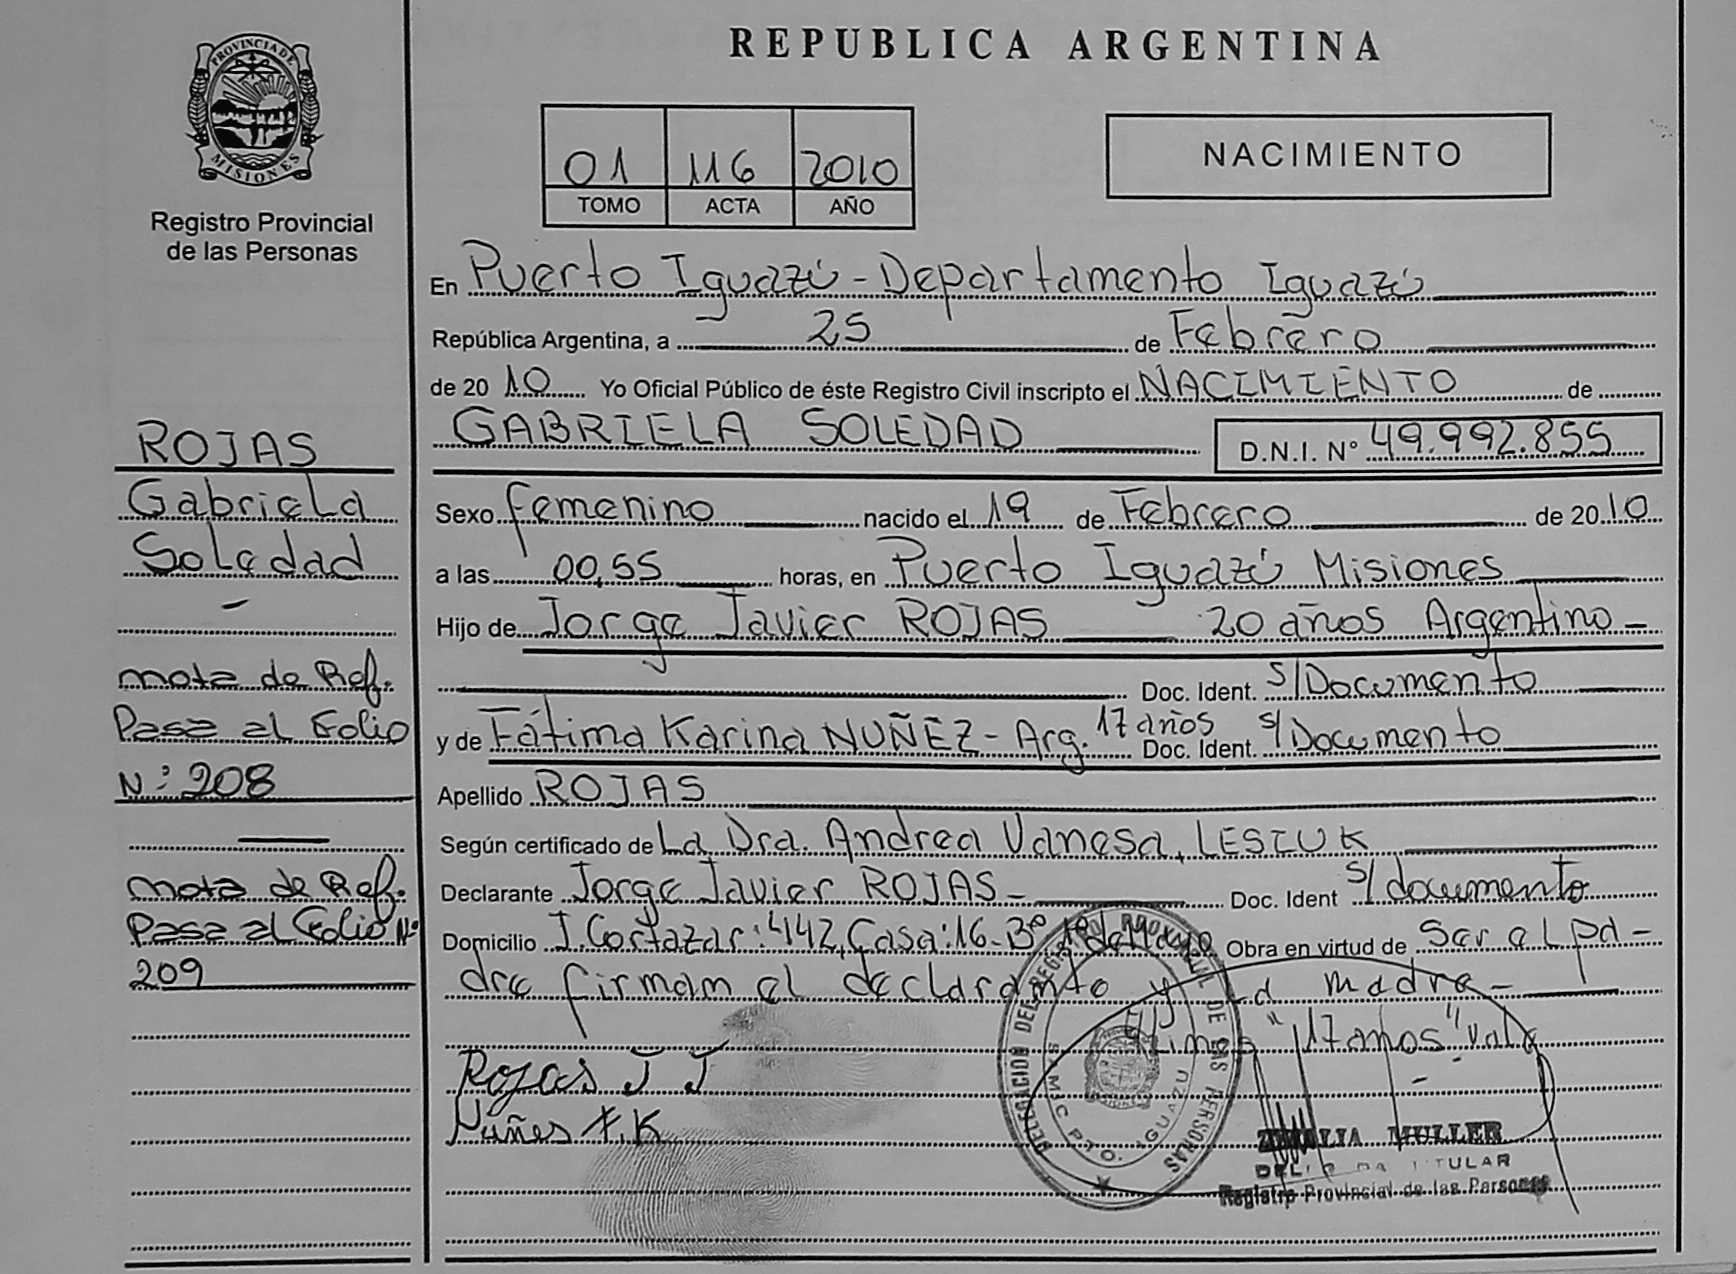 PROVINCIA DE
MISIONES
Registro Provincial
de las Personas
ROJAS
Gabriela
Soledad
-
nota de Ref.
Pasa al Folio
N:º 208
nota de Ref.
Pasa al Folio Nº
209
REPUBLICA ARGENTINA
01 116 2010
TOMO ACTA AÑO
NACIMIENTO
En Puerto Iguazú - Departamento Iguazú
República Argentina, a 25 de Febrero
de 20 10 Yo Oficial Público de éste Registro Civil inscripto el NACIMIENTO de
GABRIELA SOLEDAD D.N.I. Nº 49.992.855
Sexo femenino nacido el 19 de Febrero de 20 10
a las 00,55 horas, en Puerto Iguazú Misiones
Hijo de Jorge Javier ROJAS 20 años Argentino -
Doc. Ident. s/Documento
y de Fátima Karina NUÑEZ - Arg. 17 años Doc. Ident. s/Documento
Apellido ROJAS
Según certificado de La Dra. Andrea Vanesa, LESIUK
Declarante Jorge Javier ROJAS - Doc. Ident s/documento
Domicilio J. Cortazar: 442, Casa: 16 - Bº 1º de Mayo Obra en virtud de Ser el pa-
dre firman el declarante y la madre -
"17 anos" Vale
-
Rojas J J
Nuñes F. K
DELEGACION DEL REGISTRO PROVINCIAL DE LAS PERSONAS
SAMIC PTO. IGUAZU
MULLER
TITULAR
Registro Provincial de las Personas